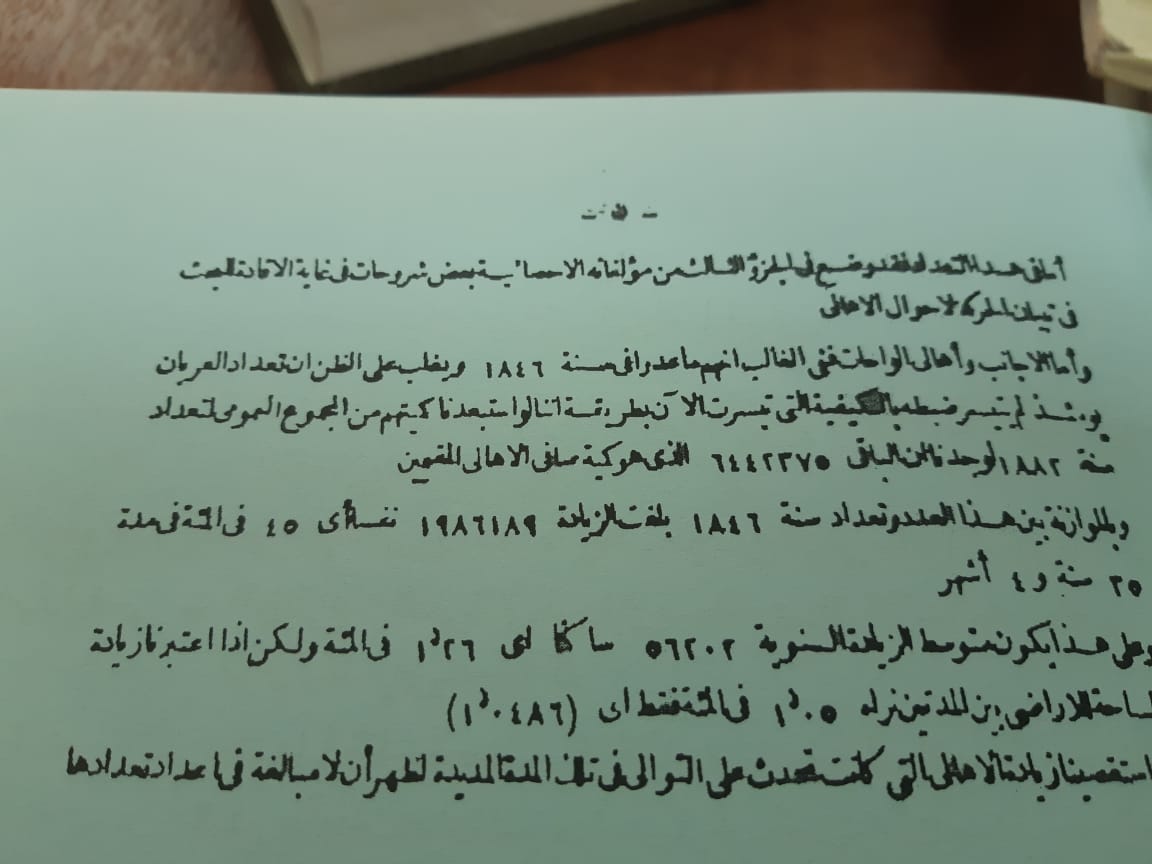 أتى هذا التعداد فقد وضع في الجزؤ الثالث من مؤلفاته الاحصائية بعض شروحات في غاية الافادة للبحث
في تبيان الحركة لاحوال الاهالى
وأما الاجانب وأهالى الواحات ففى الغالب انهم ماعدوا فى سنة ١٨٤٦ ويغلب على الظن ان تعداد العربان
يومئذ لم يتيسر ضبطه بالكيفية التى تيسرت الآن بطريقة اننا لو استبعدنا كميتهم من المجموع العمومى لتعداد
سنة ١٨٨٢ لوجدنا ان الباقى ٦٤٤٢٣٧٥ الذى هو كمية صافى الاهالى المقيمين
وبالموازنة بين هذا العدد وتعداد سنة ١٨٤٦ بلغت الزيادة ١٩٨٦١٨٩ نفسا أى ٤٥ فى المئة فى مدة
٣٥ سنة و ٤ أشهر
وعلى هذا يكون متوسط الزيادة السنوية ٥٦٢٠٢ ساكنا اى ١٫٢٦ فى المئة ولكن اذا اعتبرنا زيادة
مساحة الاراضى بين المدتين نراه ١٫٠٥ فى المئة فقط اى (١٫٠٤٨٦)
استقصينا زيادة الاهالى التى كانت تحدث على التوالى فى تلك المدة المديدة لظهر أن لا مبالغة فى اعداد تعدادها